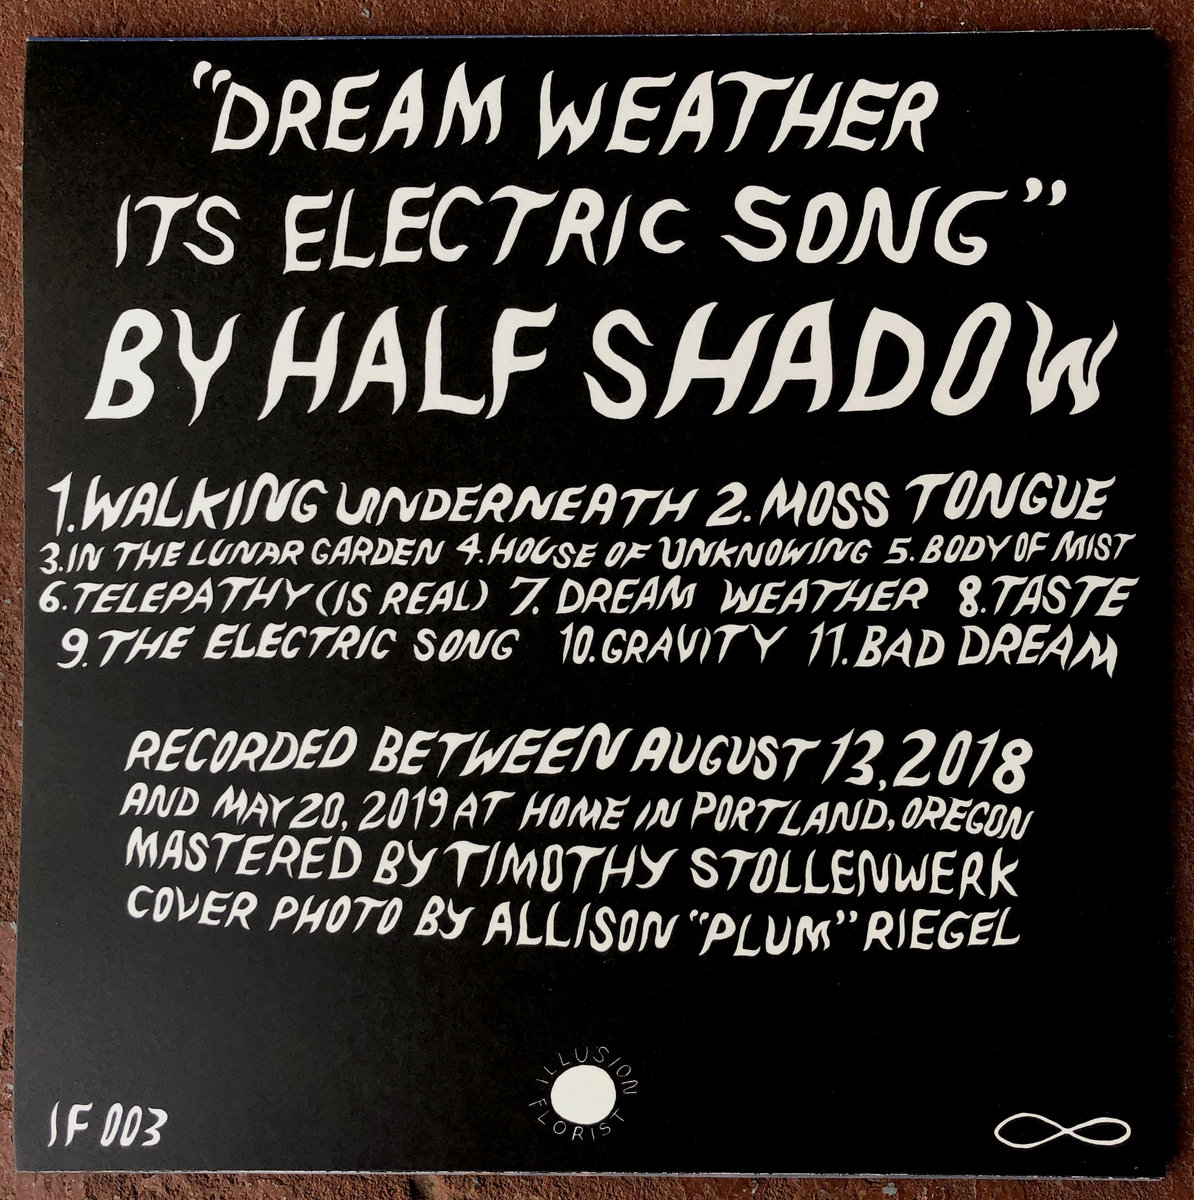 "DREAM WEATHER
ITS ELECTRIC SONG"
BY HALF SHADOW
1. WALKING UNDERNEATH 2. MOSS TONGUE
3. IN THE LUNAR GARDEN 4. HOUSE OF UNKNOWING 5. BODY OF MIST
6. TELEPATHY (IS REAL) 7. DREAM WEATHER 8. TASTE
9. THE ELECTRIC SONG 10. GRAVITY 11. BAD DREAM
RECORDED BETWEEN AUGUST 13, 2018
AND MAY 20, 2019 AT HOME IN PORTLAND, OREGON
MASTERED BY TIMOTHY STOLLENWERK
COVER PHOTO BY ALLISON "PLUM" RIEGEL
ILLUSION
FLORIST
IF 003